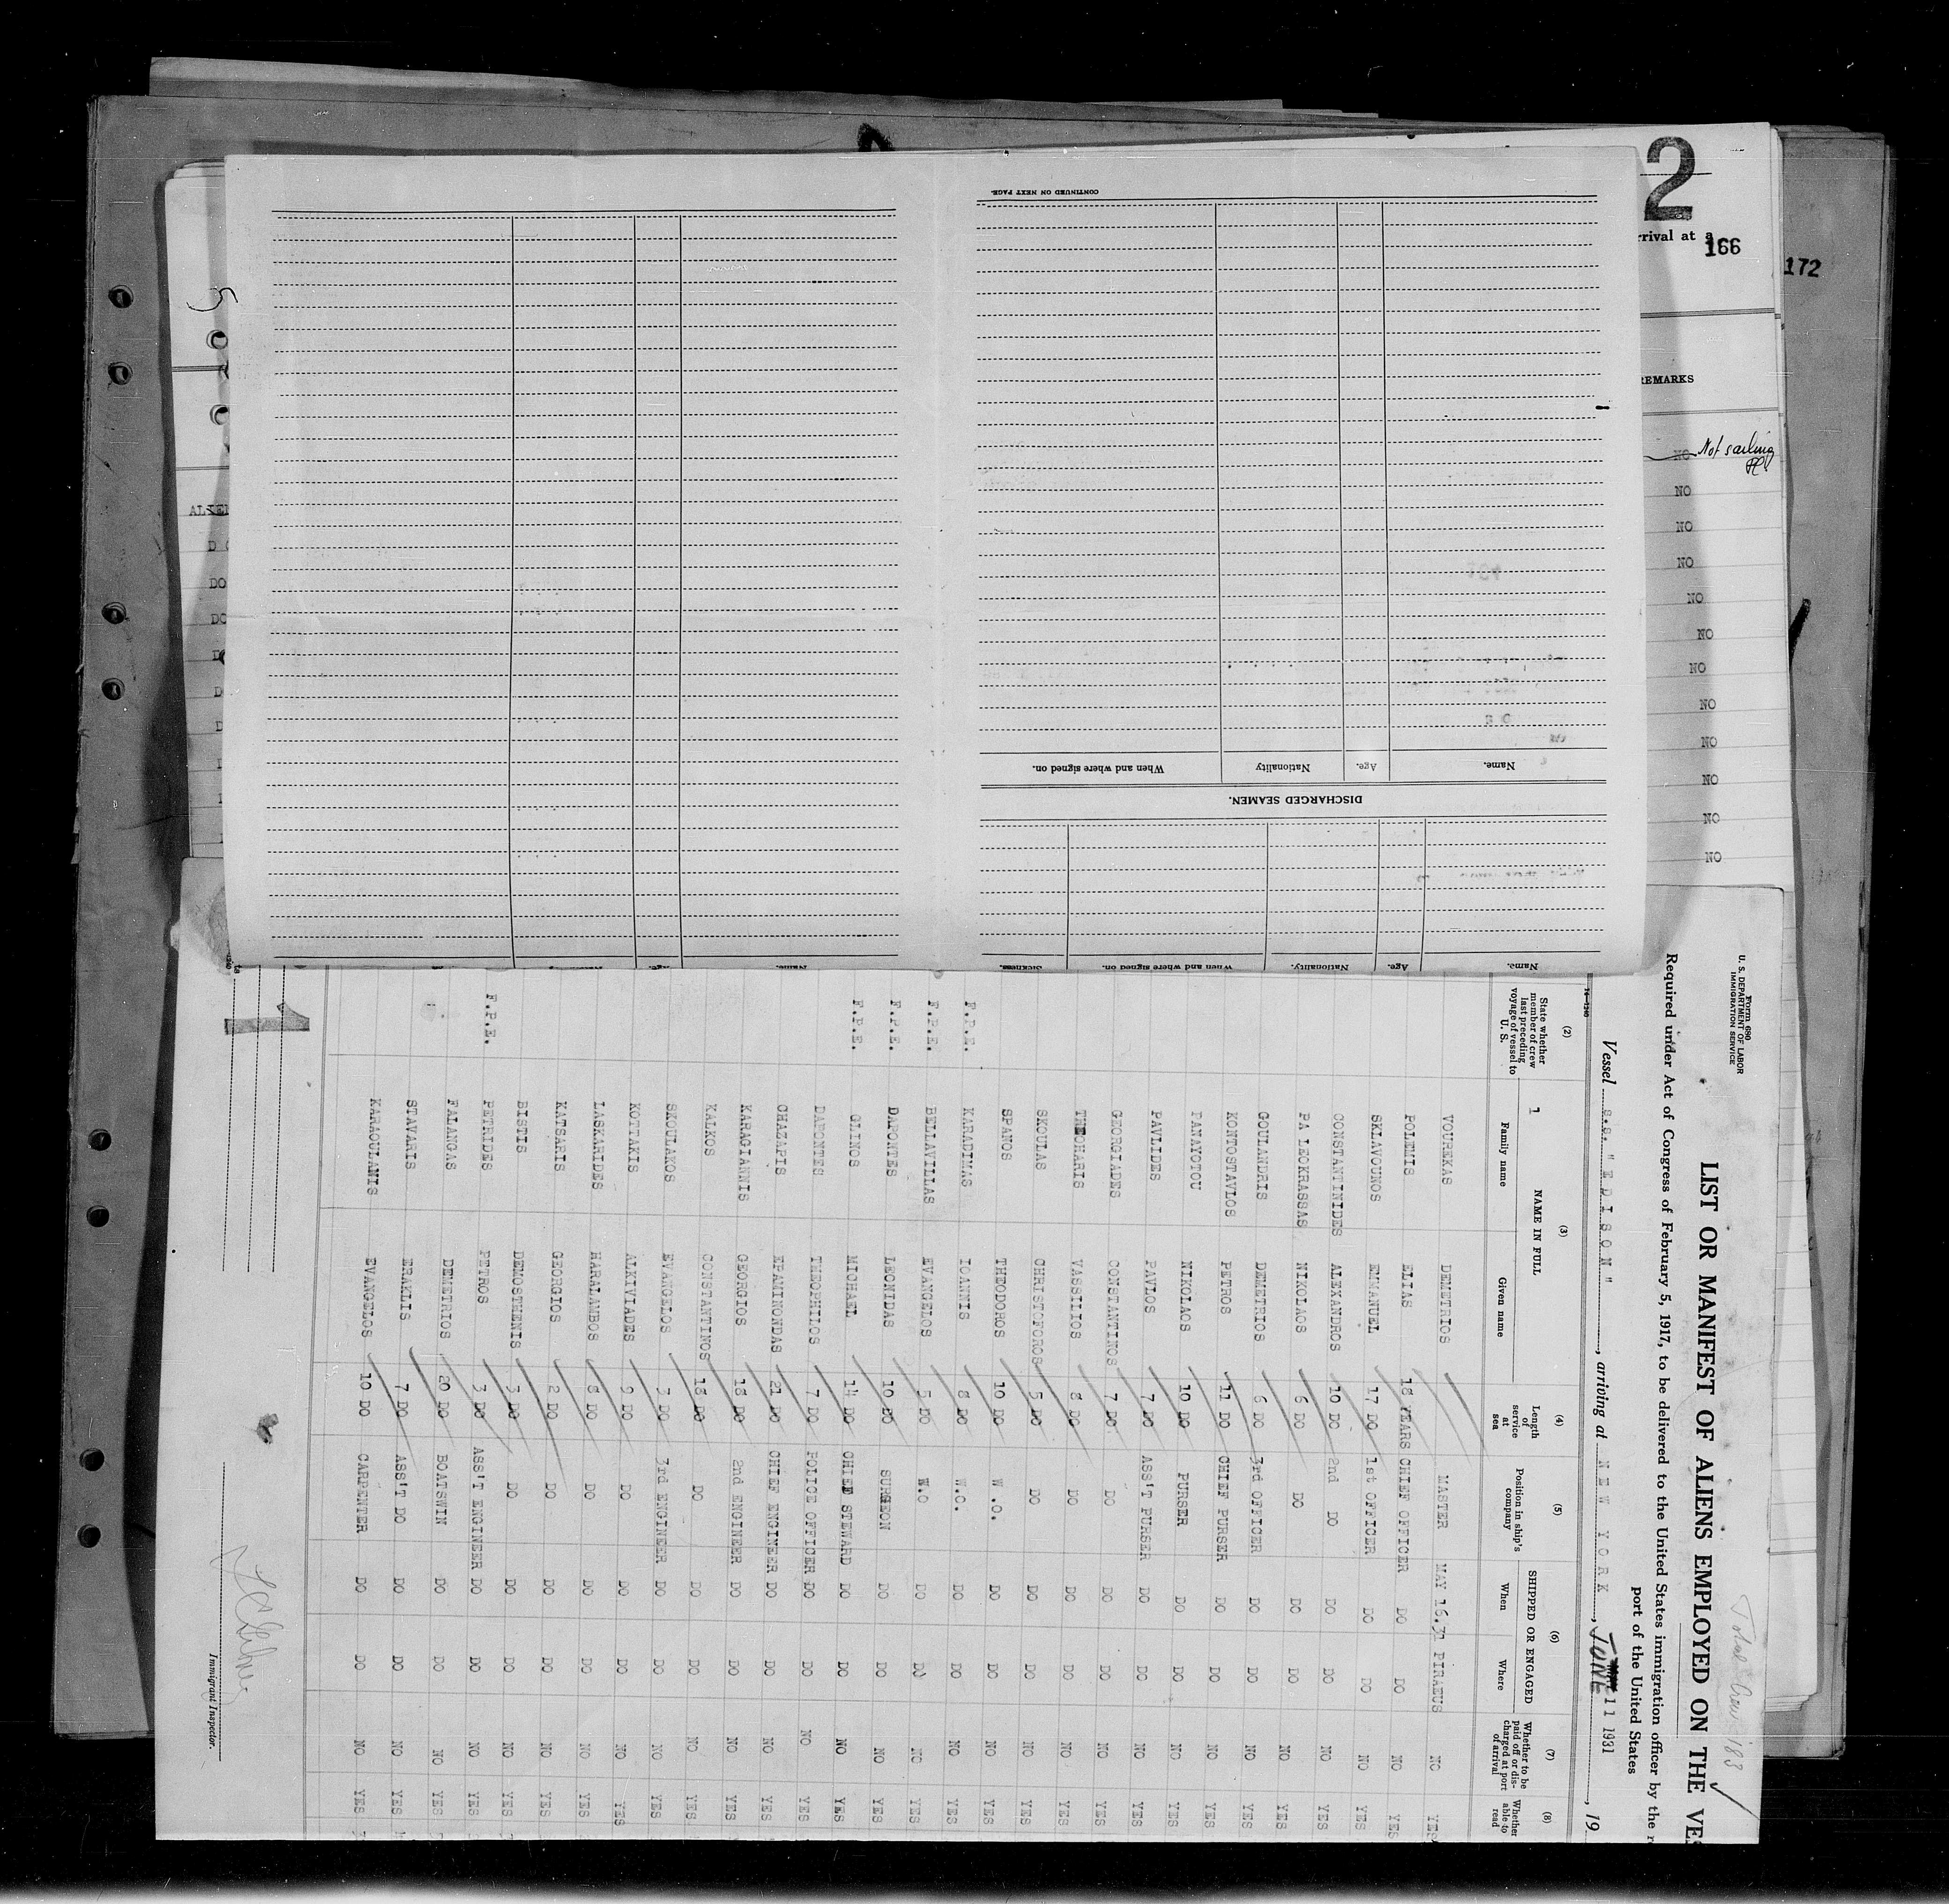 CONTINUED ON NEXT PAGE.
Name. Age. Nationality When and where signed on.
DISCHARGED SEAMEN.
Name. Age. Nationality. When and where signed on. Sickness.
Name. Age.
2
rrival at a
166
172
REMARKS
NO Not sailing
NO
NO
NO
NO
NO
NO
NO
NO
NO
NO
NO
5
ALIEN
DO
DO
DO
Form 680
U. S. DEPARTMENT OF LABOR
IMMIGRATION SERVICE
Total Crew 183
LIST OR MANIFEST OF ALIENS EMPLOYED ON THE VES
Required under Act of Congress of February 5, 1917, to be delivered to the United States immigration officer by the r
port of the United States
Vessel S.S. "EDISON", arriving at NEW YORK, JUNE 11 1931, 19
14—1240
(2) (3) (4) (5) (6) (7) (8)
State whether member of crew last preceding voyage of vessel to U. S.
NAME IN FULL
Family name Given name
Length of service at sea
Position in ship's company
SHIPPED OR ENGAGED
When Where
Whether to be paid off or discharged at port of arrival
Whether able to read
VOUREKAS DEMETRIOS MASTER MAY 16.31 PIRAEUS NO YES
POLEMIS ELIAS 18 YEARS CHIEF OFFICER DO DO NO YES
SKLAVOUNOS EMMANUEL 17 DO 1st OFFICER DO DO NO YES
CONSTANTINIDES ALEXANDROS 10 DO 2nd DO DO DO NO YES
PA LEOKRASSAS NIKOLAOS 6 DO DO DO DO NO YES
GOULANDRIS DEMETRIOS 6 DO 3rd OFFICER DO DO NO YES
KONTOSTAVLOS PETROS 11 DO CHIEF PURSER DO DO NO YES
PANAYOTOU NIKOLAOS 10 DO PURSER DO DO NO YES
PAVLIDES PAVLOS 7 DO ASS'T PURSER DO DO NO YES
GEORGIADES CONSTANTINOS 7 DO DO DO DO NO YES
THEOHARIS VASSILIOS 8 DO DO DO DO NO YES
SKOULAS CHRISTOFOROS 5 DO DO DO DO NO YES
SPANOS THEODOROS 10 DO W .O. DO DO NO YES
F.P.E. KARADIMAS IOANNIS 8 DO W.O. DO DO NO YES
F.P.E. BELLAVILLAS EVANGELOS 5 DO W.O DO DO NO YES
F.P.E. DAPONTES LEONIDAS 10 DO SURGEON DO DO NO YES
F.P.E. GLINOS MICHAEL 14 DO CHIEF STEWARD DO DO NO YES
DAPONTES THEOPHILOS 7 DO POLICE OFFICER DO DO NO YES
CHAZAPIS EPAMINONDAS 21 DO CHIEF ENGINEER DO DO NO YES
KARAGIANNIS GEORGIOS 18 DO 2nd ENGINEER DO DO NO YES
KALKOS CONSTANTINOS 18 DO DO DO DO NO YES
SKOULAKOS EVANGELOS 3 DO 3rd ENGINEER DO DO NO YES
KOTTAKIS ALKIVIADES 9 DO DO DO DO NO YES
LASKARIDES HARALAMBOS 8 DO DO DO DO NO YES
KATSARIS GEORGIOS 2 DO DO DO DO NO YES
BISTIS DEMOSTHENIS 3 DO DO DO DO NO YES
F.P.E. PETRIDES PETROS 3 DO ASS'T ENGINEER DO DO NO YES
FALANGAS DEMETRIOS 20 DO BOATSWIN DO DO NO YES
STAVARIS ERAKLIS 7 DO ASS'T DO DO DO NO YES
KARAOULANIS EVANGELOS 10 DO CARPENTER DO DO NO YES
1
Immigrant Inspector.